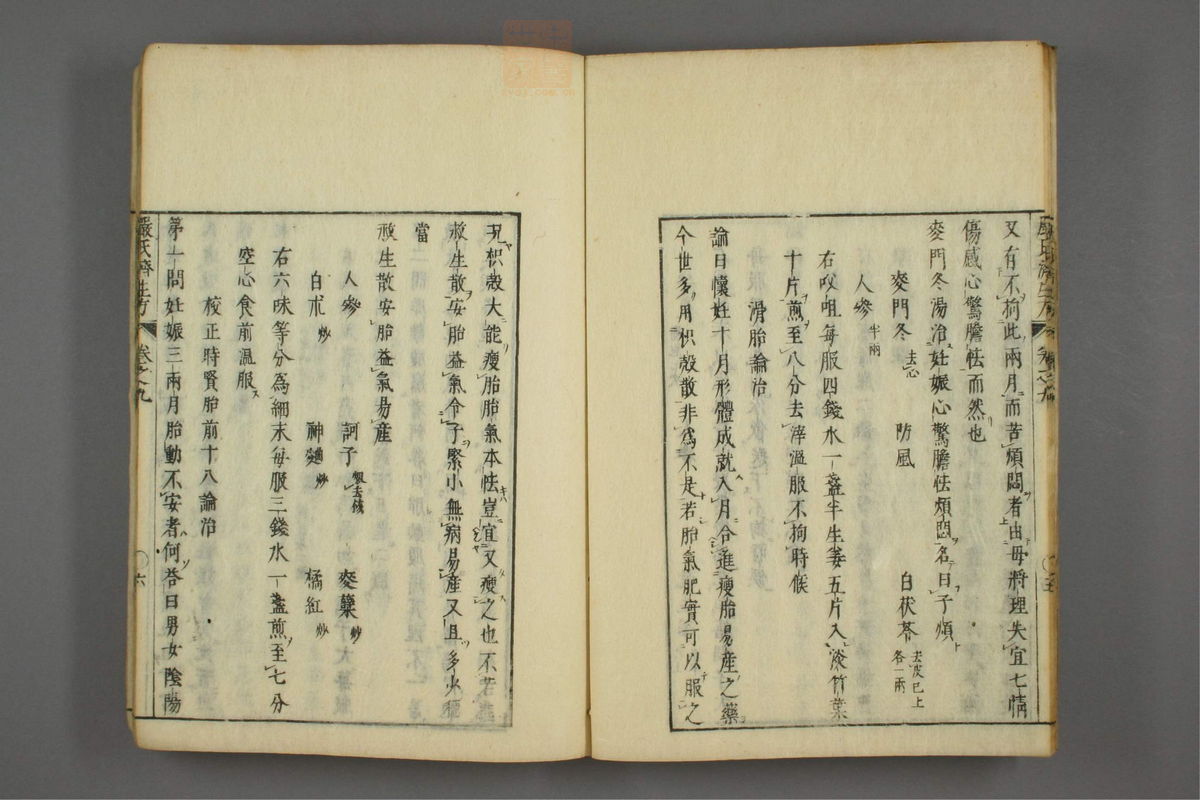 又有不拘此兩月而苦煩悶者由母將理失宜七情
傷感心驚膽怯而然也
麥門冬湯治妊娠心驚膽怯煩悶名曰子煩
麥門冬去心 防風 白茯苓去皮已上各一兩
人參半兩
右㕮咀每服四錢水一盞半生姜五片入淡竹葉
十片煎至八分去滓溫服不拘時候
滑胎論治
論曰懷妊十月形體成就入月合進瘦胎易産之藥
今世多用枳殼散非爲不是若胎氣肥實可以服之
況枳殼大能瘦胎胎氣本怯豈宜又瘦之也不若進
救生散安胎益氣令子緊小無病易産又且多火
當
救生散安胎益氣易産
人參 訶子 麥蘖炒
白朮炒 神麯炒 橘紅炒
右六味等分爲細末每服三錢水一盞煎至七分
空心食前溫服
校正時賢胎前十八論治
第一問妊娠三兩月胎動不安者何荅曰男女陰陽
嚴氏濟生方 卷之九 六